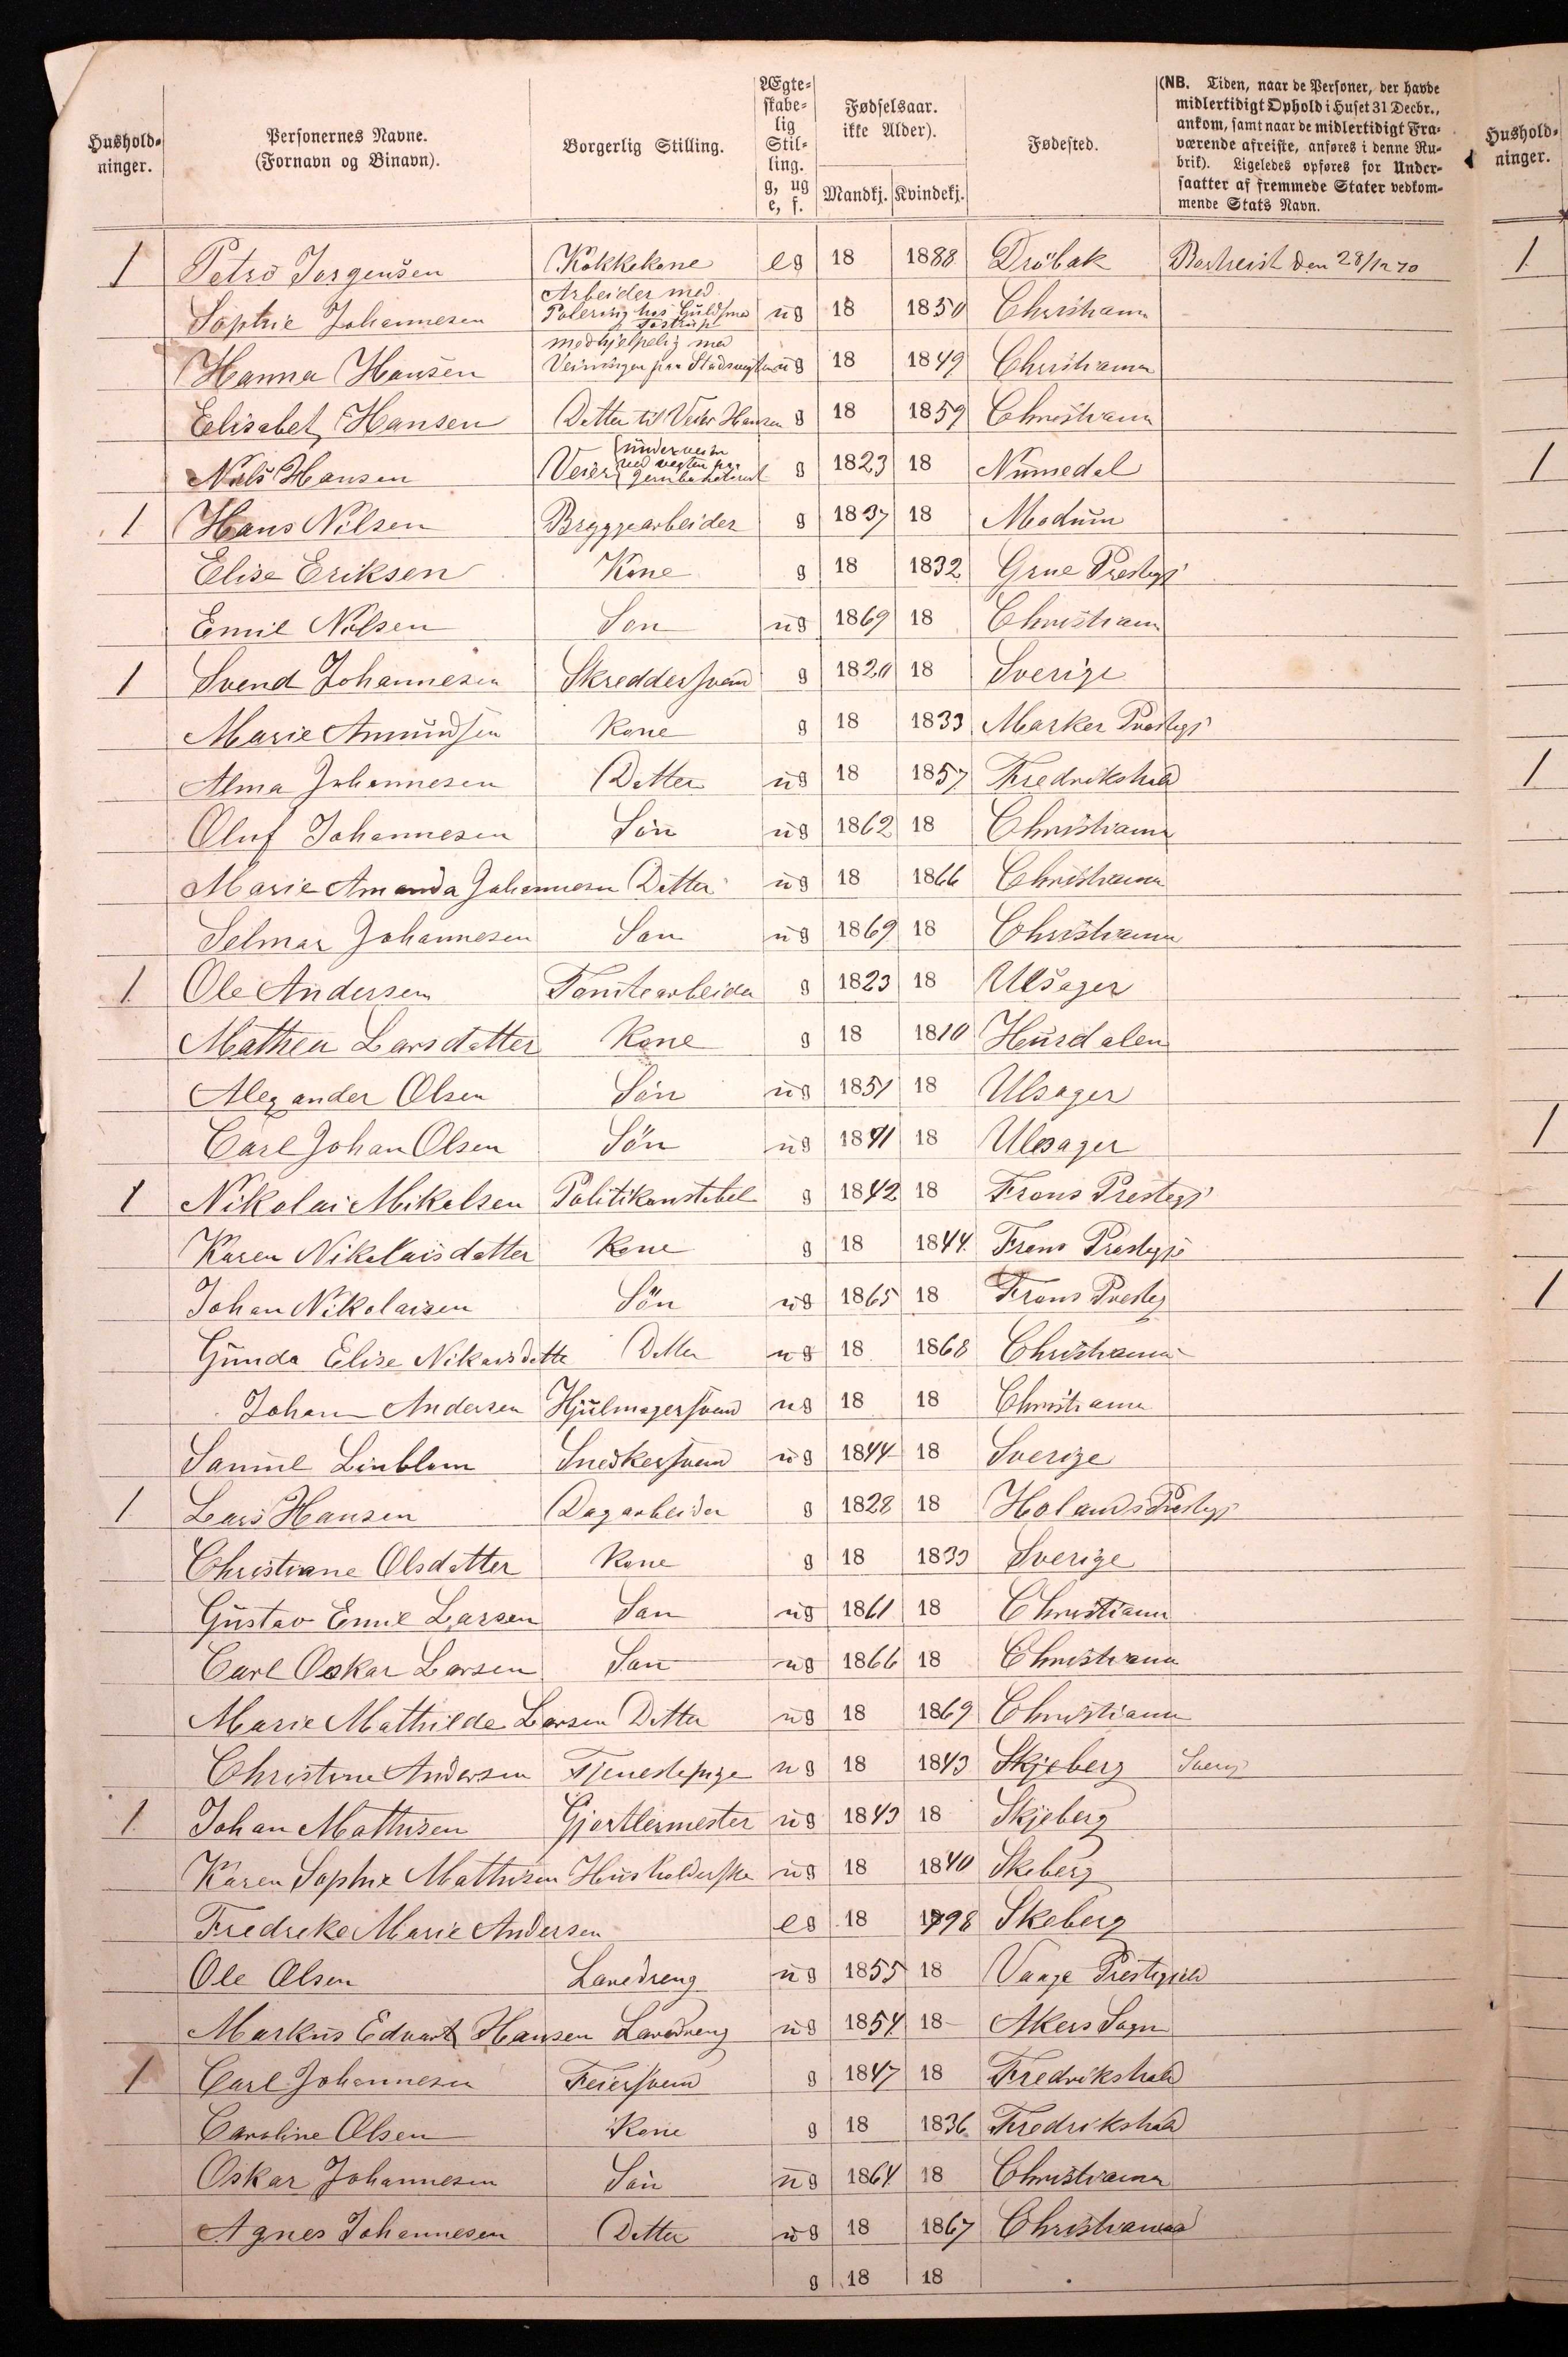 Hushold-ninger.
Personernes Navne. (Fornavn og Binavn).
Borgerlig Stilling.
Ægte-skabe-lig Stil-ling. g, ug e, f.
Fødselsaar. ikke Alder).
Mandkj. Kvindekj.
Fødested.
(NB. Tiden, naar de Personer, der havde midlertidigt Ophold i Huset 31 Decbr., ankom, samt naar de midlertidigt Fra-værende afreiste, anføres i denne Ru-brik). Ligeledes opføres for Under-saatter af fremmede Stater vedkom-mende Stats Navn.
Hushold-ninger.
1 Petrö Jorgensen Kokkekone eg 18 1888 Dröbak Bortreist den 28/12 70 1
Sophie Johannesen Arbeider med Polering hos Guldsmed Tostrup ug 18 1850 Christiania
Hanna Hansen medhjelpelig med Veiningen paa ug 18 1849 Christiania
Elisabet Hansen Datter til Veier Hansen g 18 1859 Christiania
Nils Hansen Veier underveier ved vegten paa g 1823 18 Numedal 1
1 Hans Nilsen Bryggearbeider g 1837 18 Modum
Elise Eriksen Kone g 18 1832 Grue Prestegj
Emil Nilsen Son ug 1869 18 Christiania
1 Svend Johannesen Skreddersvend g 1820 18 Sverige
Marie Amundsen Kone g 18 1833 Marker Prestegj
Alma Johannesen Datter ug 18 1857 Fredrikshald 1
Oluf Johannesen Sön ug 1862 18 Christiania
Marie Amanda Johannesen Datter ug 18 1866 Christiania
Selmar Johannesen Son ug 1869 18 Christiania
1 Ole Andersen Tomtearbeider g 1823 18 Ulsager
Mathea Larsdatter Kone g 18 1810 Hurdalen
Alexander Olsen Sön ug 1851 18 Ulsager
Carl Johan Olsen Sön ug 1841 18 Ulsager 1
1 Nikolai Mikelsen Politikonstebel g 1842 18 Frons Prestegj
Karen Nikolaisdatter Kone g 18 1844 Frons Prestegje
Johan Nikolaisen Sön ug 1865 18 Frons Presteg 1
Gunda Elise Datter ug 18 1868 Christiania
Johan Andersen Hjulmagersvend ug 18 18 Christiania
Samuel Linblom Snedkersvend ug 1844 18 Sverige
1 Lars Hansen Dagarbeider g 1828 18 Holands Prestegj
Christiane Olsdatter Kone g 18 1833 Sverige
Gustav Emil Larsen Son ug 1861 18 Christiania
Carl Oskar Larsen Son ug 1866 18 Christiania
Marie Mathilde Larsen Datter ug 18 1869 Christiania
Christine Andersen Tjenestepige ug 18 1843 Skjeberg
1 Johan Mathisen Gjørtlermester ug 1843 18 Skjeberg
Karen Sophie Mathisen Husholderske ug 18 1840 Skeberg
Fredreke Marie Andersen eg 18 1798 Skeberg
Ole Olsen Laredreng ug 1855 18 Vange Prestegjeld
Markus Edvart Hansen Laredreng ug 1854 18 Akers Sogn
1 Carl Johannesen Feiersvend g 1847 18 Fredrikshald
Caroline Olsen Kone g 18 1836 Fredrikshald
Oskar Johannesen Sön ug 1864 18 Christiania
Agnes Johannesen Datter ug 18 1867 Christiania
g 18 18